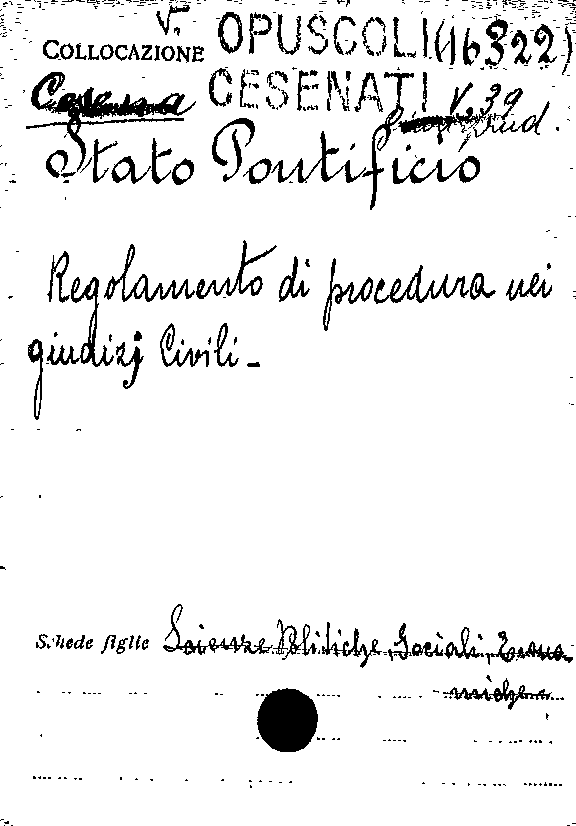 V.
COLLOCAZIONE OPUSCOLI (16322)
Cesena CESENATI V. 39
Stato Pontificio
Regolamento di procedura nei
giudizj Civili _
Schede figlie Scienze Politiche, Sociali, Econo
miche